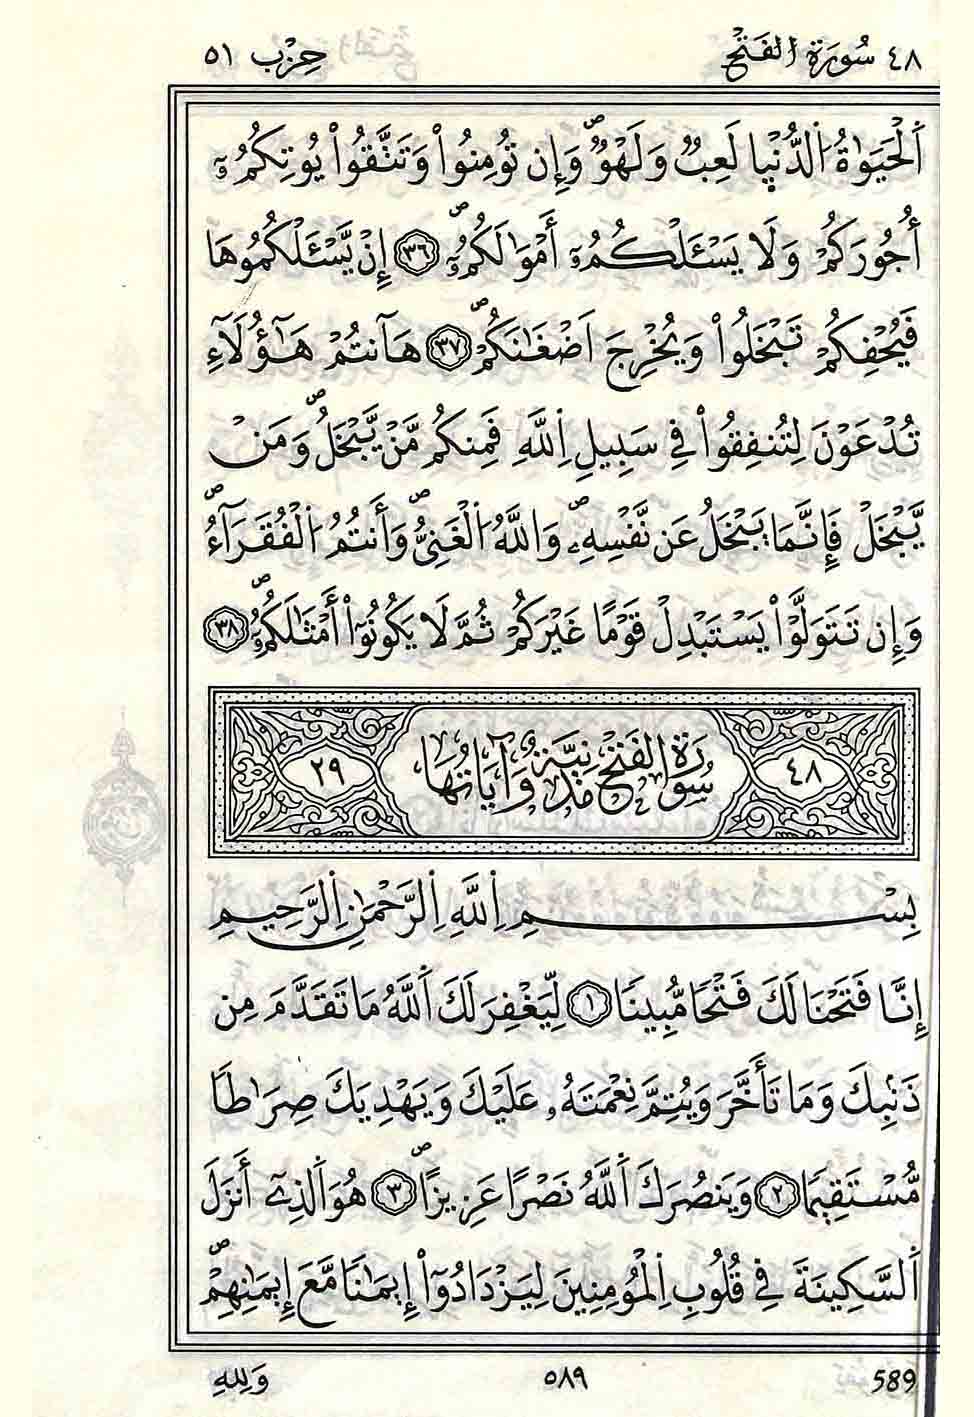 ٤٨ سُورَةُ الفَتْحِ
حِزْب ٥١
اَ۬لْحَيَوٰةُ اُ۬لدُّنْي۪ا لَعِبٞ وَلَهْوٞۖ وَإِن تُومِنُواْ وَتَتَّقُواْ يُوتِكُمُۥٓ
أُجُورَكُمْ وَلَا يَسْـَٔلْكُمُۥٓ أَمْوَٰلَكُمُۥٓۖ ٣٦ إِنْ يَّسْـَٔلْكُمُوهَا
فَيُحْفِكُمْ تَبْخَلُواْ وَيُخْرِجَ اَضْغَٰنَكُمْۖ ٣٧ هَآنتُمْ هَٰٓؤُلَآءِ
تُدْعَوْنَ لِتُنفِقُواْ فِے سَبِيلِ اِ۬للَّهِ فَمِنكُم مَّنْ يَّبْخَلُۖ وَمَنْ
يَّبْخَلْ فَإِنَّمَا يَبْخَلُ عَن نَّفْسِهِۦۖ وَاللَّهُ اُ۬لْغَنِيُّۖ وَأَنتُمُ اُ۬لْفُقَرَآءُۖ
وَإِن تَتَوَلَّوْاْ يَسْتَبْدِلْ قَوْماً غَيْرَكُمْ ثُمَّ لَا يَكُونُوٓاْ أَمْثَٰلَكُمُۥۖ ٣٨
٤٨
سُورَةُ الفَتْحِ مَدَنِيَّةٌ وَآيَاتُهَا
٢٩
بِسْمِ اِ۬للَّهِ اِ۬لرَّحْمَٰنِ اِ۬لرَّحِيمِ
إِنَّا فَتَحْنَا لَكَ فَتْحاً مُّبِيناً ١ لِّيَغْفِرَ لَكَ اَ۬للَّهُ مَا تَقَدَّمَ مِن
ذَنۢبِكَ وَمَا تَأَخَّرَ وَيُتِمَّ نِعْمَتَهُۥ عَلَيْكَ وَيَهْدِيَكَ صِرَٰطاً
مُّسْتَقِيماً ٢ وَيَنصُرَكَ اَ۬للَّهُ نَصْراً عَزِيزاًۖ ٣ هُوَ اَ۬لذِےٓ أَنزَلَ
اَ۬لسَّكِينَةَ فِے قُلُوبِ اِ۬لْمُومِنِينَ لِيَزْدَادُوٓاْ إِيمَٰناً مَّعَ إِيمَٰنِهِمْۖ
وَلِلهِ
٥٨٩
589